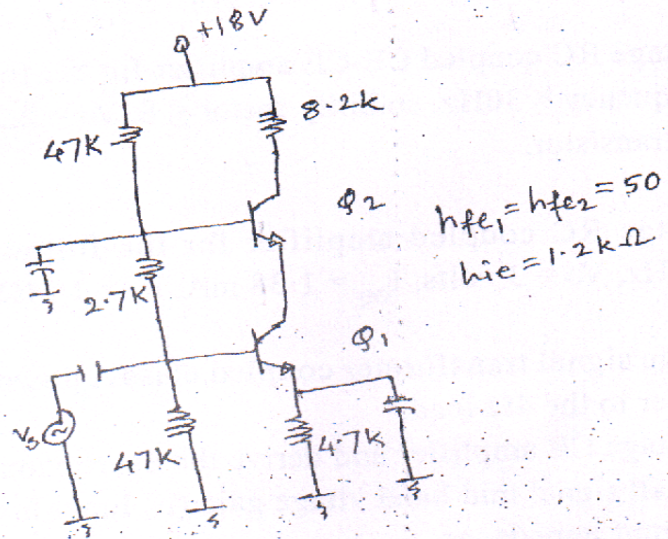 +18V
8.2k
47K
Q2
hfe1 = hfe2 = 50
hie = 1.2kΩ
2.7K
Q1
Vs
47K
4.7K